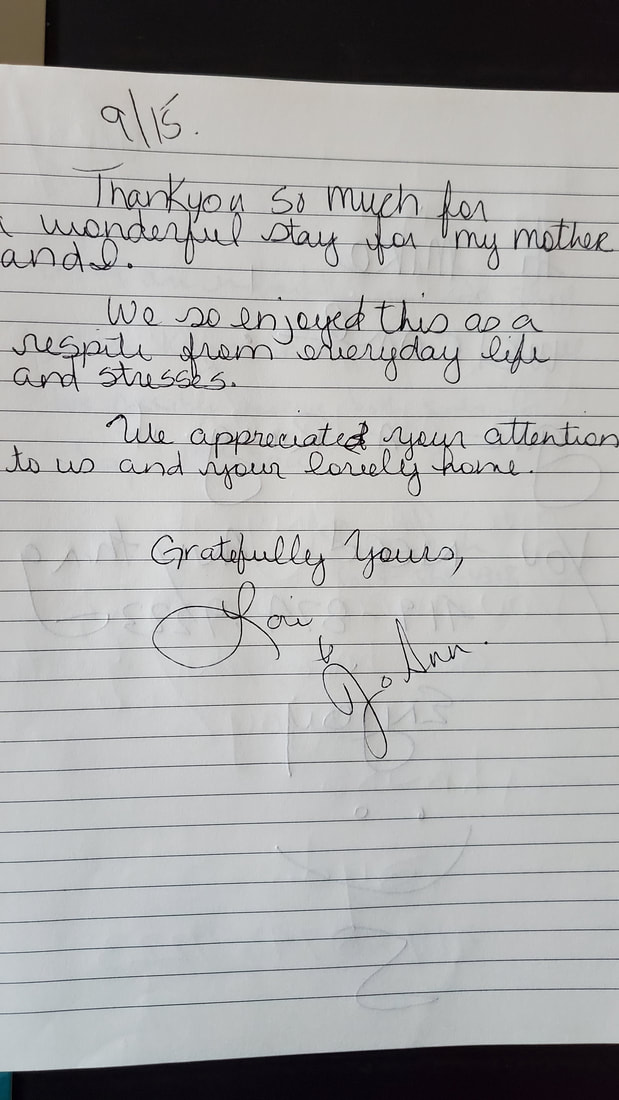 9/15.
Thankyou so much for
a wonderful stay for my mother
and I.
We so enjoyed this as a
respite from everyday life
and stresses.
We appreciated your attention
to us and your lovely home.
Gratefully Yours,
Lori
&
Jo Ann.